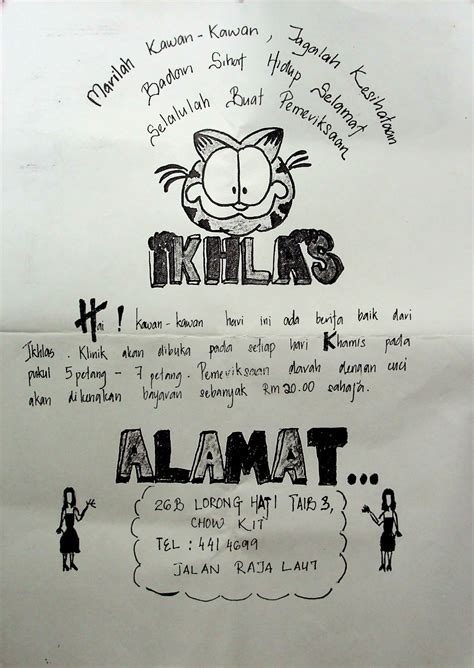 Marilah Kawan-Kawan, Jagalah Kesihataan
Badan Sihat Hidup Selamat
Selalulah Buat Pemeriksaan
IKHLAS
Hai! Kawan-kawan hari ini ada berita baik dari
Ikhlas. Klinik akan dibuka pada setiap hari Khamis pada
pukul 5 petang - 7 petang. Pemeriksaan darah dengan cuci
akan dikenakan bayaran sebanyak RM 20.00 sahaja.
ALAMAT...
26B LORONG HAJI TAIB 3,
CHOW KIT
TEL : 441 4699
JALAN RAJA LAUT